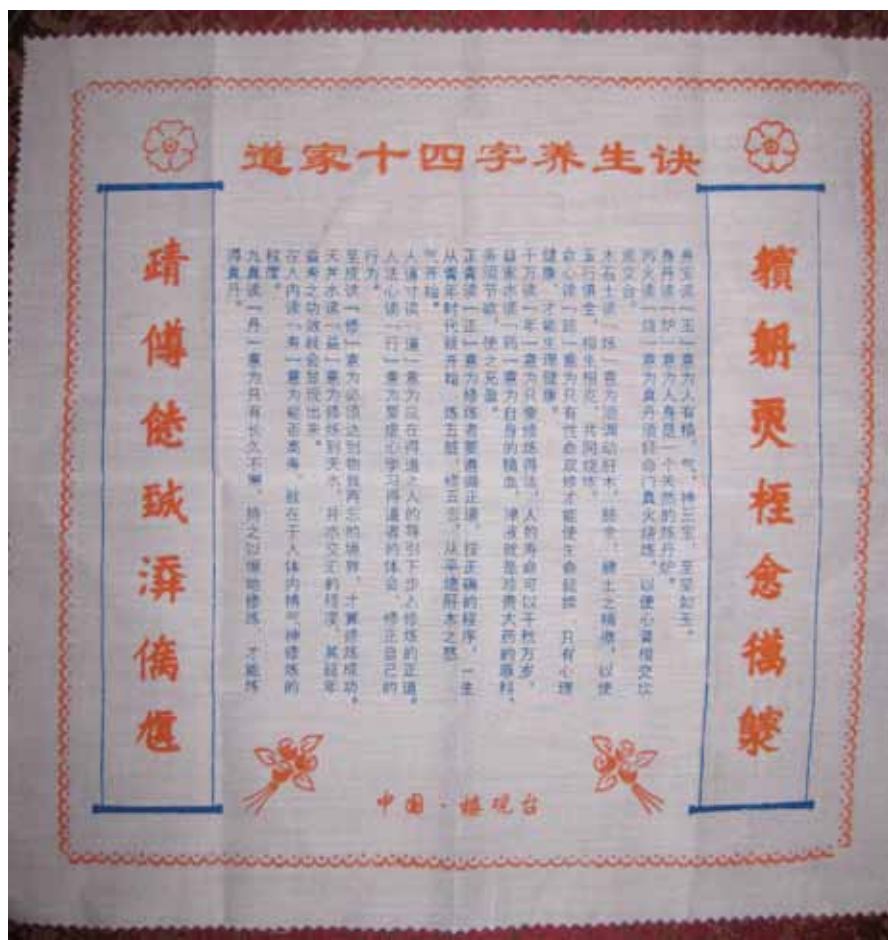 道家十四字养生诀
身宝读「玉」意为人有精、气、神三宝，至坚如玉。
身丹读「炉」意为人身是一个天然的炼丹炉。
丙火读「烧」意为真丹须经命门真火烧炼，以使心肾相交坎
离交合。
木石土读「炼」意为须调动肝木、肺金、脾土之精微，以使
五行俱全，相生相克，共同烧炼。
命心读「延」意为只有性命双修才能使生命延续，只有心理
健康，才能生理健康。
千万读「年」意为只要修炼得法，人的寿命可以千秋万岁。
自家水读「药」意为自身的精血、津液就是珍贵大药的原料，
务须节欲，使之充盈。
正青读「正」意为修炼者要遵循正道，按正确的程序，一生
从青年时代就开始，炼五脏，修五志，从平肝木之怒
气开始。
人道寸读「道」意为应在得道之人的导引下步入修炼的正道。
人法心读「行」意为要虚心学习得道者的体会，修正自己的
行为。
至成读「修」意为必须达到物我两忘的境界，才算修炼成功。
天井水读「益」意为修炼到天水、井水交汇的程度，其延年
益寿之功效就会显现出来。
在人内读「寿」意为能否高寿，就在于人体内精气神修炼的
程度。
九真读「丹」意为只有长久不懈、持之以恒地修炼，才能炼
得真丹。
中国·楼观台